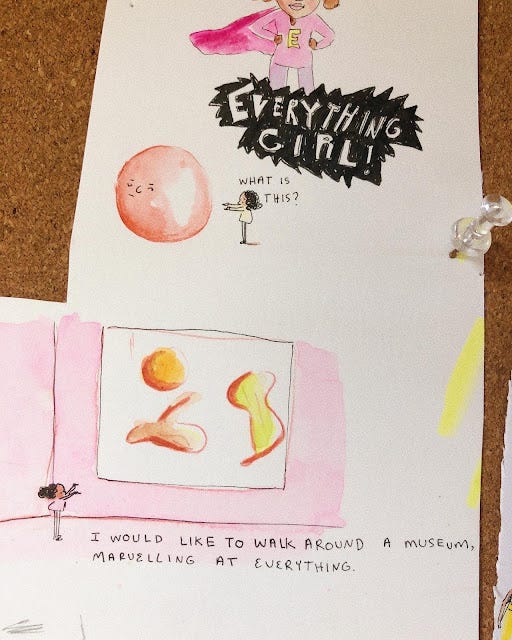 E
EVERYTHING
GIRL!
WHAT IS
THIS?
I WOULD LIKE TO WALK AROUND A MUSEUM,
MARVELLING AT EVERYTHING.